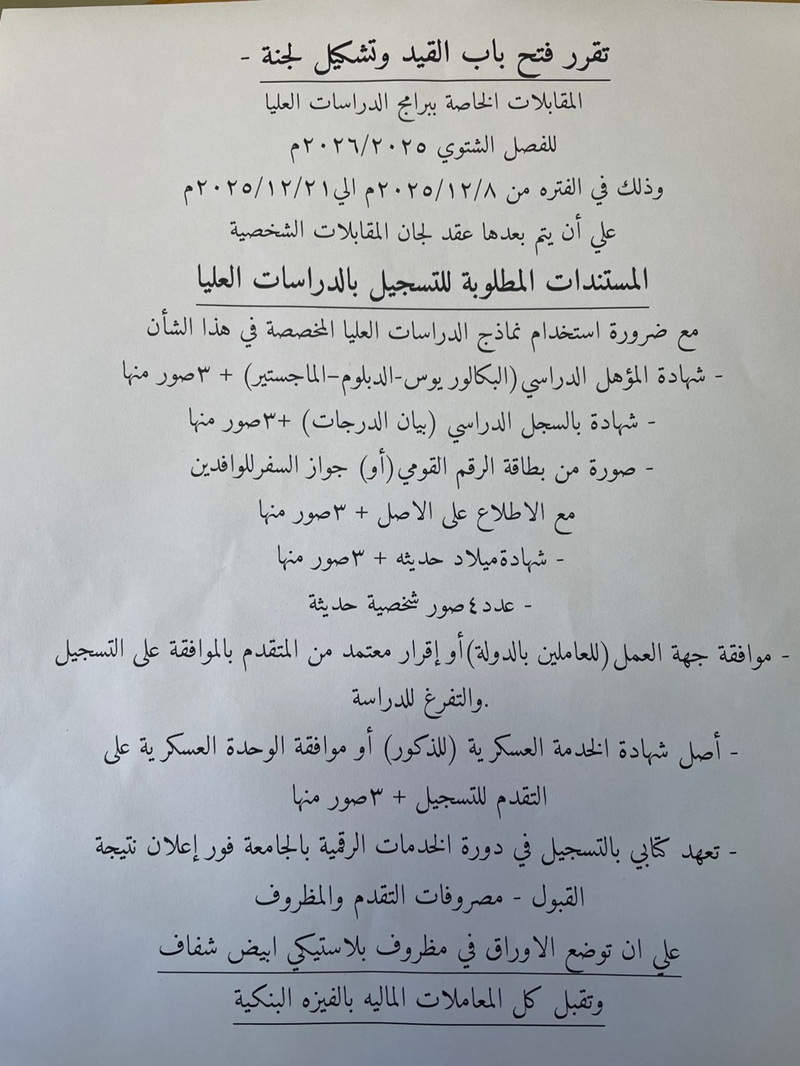 تقرر فتح باب القيد وتشكيل لجنة -
المقابلات الخاصة ببرامج الدراسات العليا
للفصل الشتوي ٢٠٢٦/٢٠٢٥م
وذلك في الفتره من ٢٠٢٥/١٢/٨م الي٢٠٢٥/١٢/٢١م
علي أن يتم بعدها عقد لجان المقابلات الشخصية
المستندات المطلوبة للتسجيل بالدراسات العليا
مع ضرورة استخدام نماذج الدراسات العليا المخصصة في هذا الشأن
- شهادة المؤهل الدراسي(البكالور يوس-الدبلوم–الماجستير) + ٣صور منها
- شهادة بالسجل الدراسي (بيان الدرجات) +٣صور منها
- صورة من بطاقة الرقم القومي(أو) جواز السفرللوافدين
مع الاطلاع على الاصل + ٣صور منها
- شهادةميلاد حديثه + ٣صور منها
- عدد٤صور شخصية حديثة
- موافقة جهة العمل(للعاملين بالدولة)أو إقرار معتمد من المتقدم بالموافقة على التسجيل
والتفرغ للدراسة.
- أصل شهادة الخدمة العسكرية (للذكور) أو موافقة الوحدة العسكرية على
التقدم للتسجيل + ٣صور منها
- تعهد كتابي بالتسجيل في دورة الخدمات الرقمية بالجامعة فور إعلان نتيجة
القبول - مصروفات التقدم والمظروف
علي ان توضع الاوراق في مظروف بلاستيكي ابيض شفاف
وتقبل كل المعاملات الماليه بالفيزه البنكية